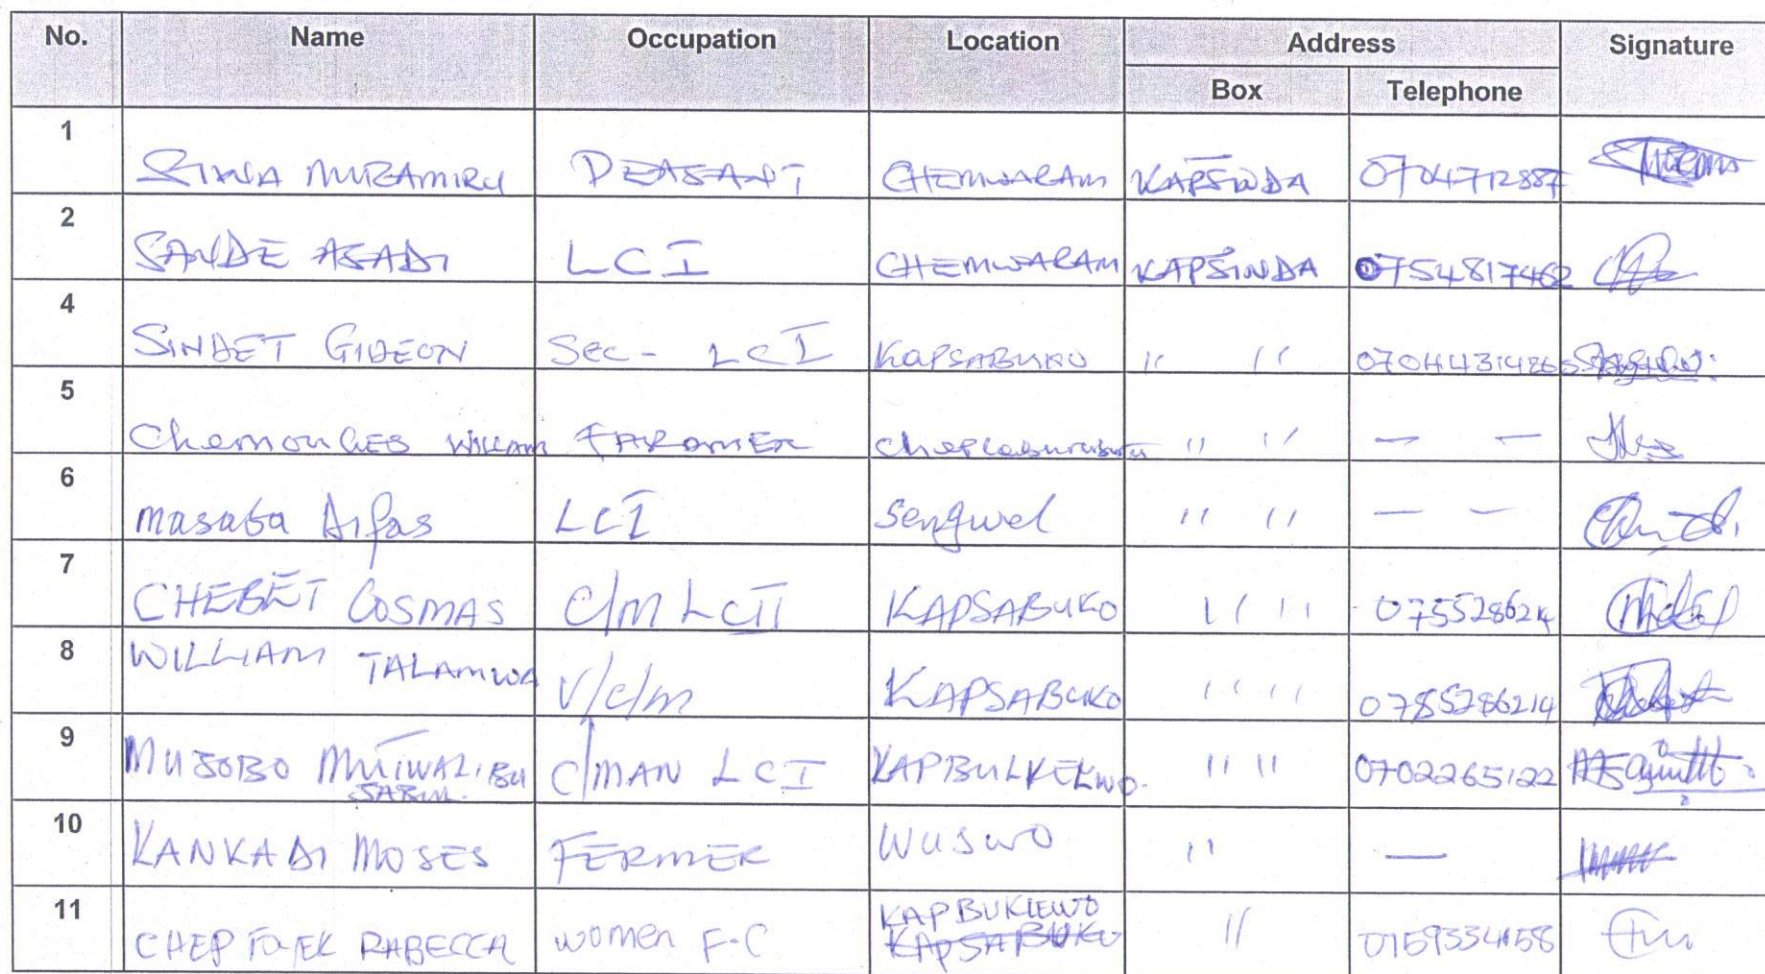 No. Name Occupation Location Address Signature
Box Telephone
1 SIWA MUZAMIRU PEASANT CHEMWARAM KAPSINDA 0704712887
2 SANDE ASADI LCI CHEMWARAM KAPSINDA 0754817462
4 SINDET GIDEON Sec - LCI KAPSABUKO " " 07044314265
5 Chemonges WILLIAM FAROMER " " — —
6 masaba Aifas LCI Sengwel " " — —
7 CHEBET COSMAS C/M LCII KAPSABUKO " " 075528624
8 WILLIAM TALAMWA V/C/M KAPSABUKO " " 0785286214
9 MUSOBO C/MAN LCI KAPBULKEKWO. " " 0702265122
SABILA
10 KANKADI MOSES FERMER WUSWO " —
11 CHEPTOYEK RABECCA women F-C KAPBUKLEWO " 0759334158
KAPSABUKO